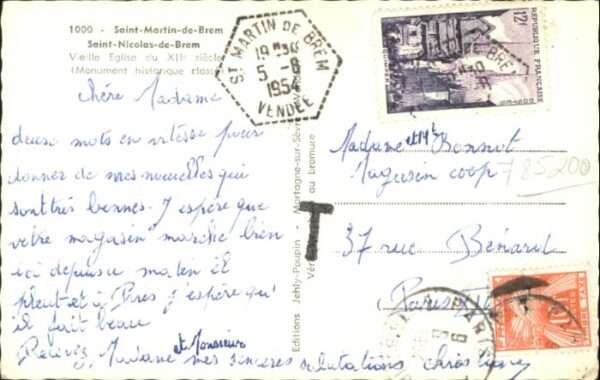 1000 - Saint-Martin-de-Brem
Saint-Nicolas-de-Brem
Vieille Eglise du XIIe siècle
(Monument historique classé
ST MARTIN DE BREM
19H30
5 - 8
1954
VENDÉE
12F
REPUBLIQUE FRANCAISE
POSTES
Chère Madame
deux mots en vitesse pour
donner de mes nouvelles qui
sont très bonnes. J espère que
votre magasin marche bien
ici depuis matin il
pleut et à Paris j'espère qu'
il fait beau
Recevez, Madame et Monsieur mes sincères salutations Christiane
Editions Jehly-Poupin - Mortagne-sur-Sèvre
au bromure
T
Madame et Mr Bonnot
Magasin coop
785200
37 rue Bénard
Paris
PARIS